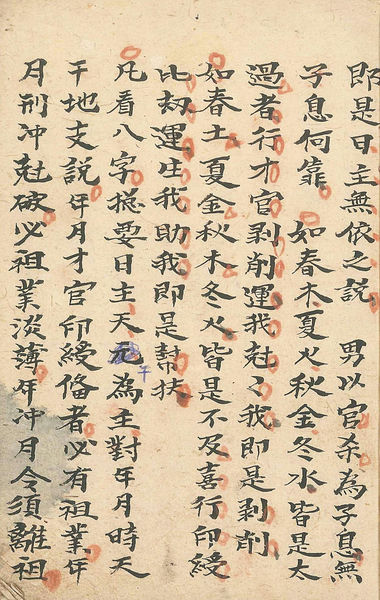 即是日主無依之說　男以官杀為子息無
子息何靠　如春木夏火秋金冬水皆是太
過者行才官剥削運我尅〻我即是剥削
如春土夏金秋木冬火皆是不及喜行印綬
比刼運生我助我即是幫扶
凡看八字捴要日主天元為主對年月時天
干地支說年月才官印綬俻者必有祖業年
月刑冲尅破必祖業淡薄年冲月令須離祖